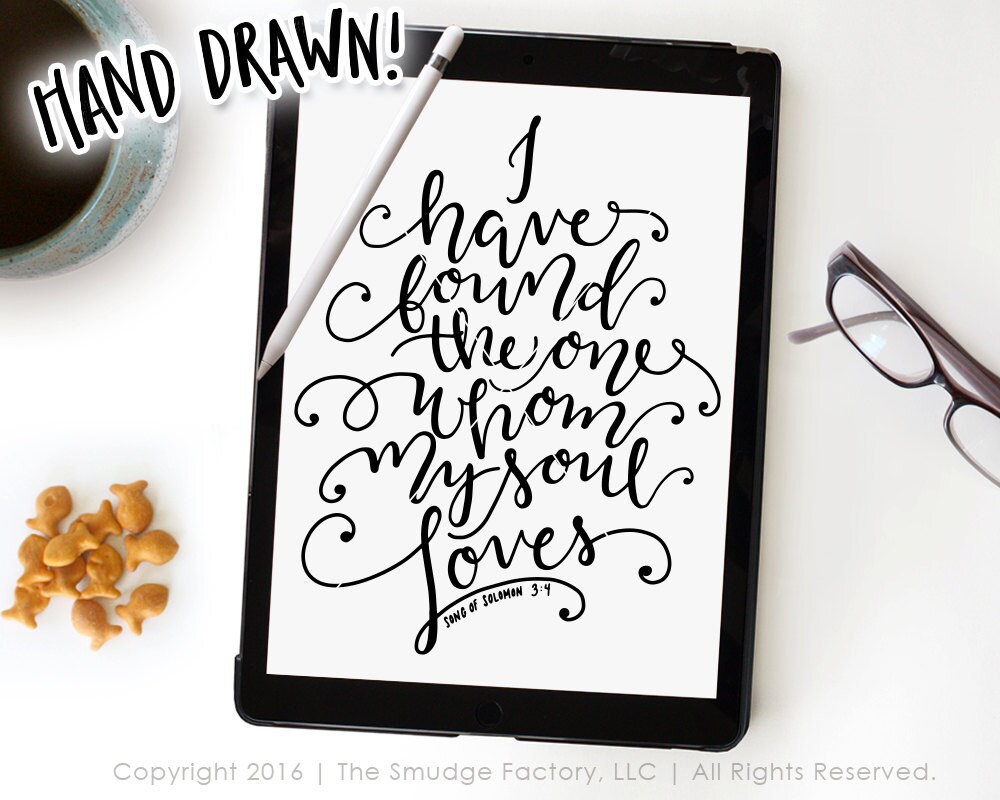 HAND DRAWN!
I
have
found
the one
whom
my soul
loves
SONG OF SOLOMON 3:4
Copyright 2016 | The Smudge Factory, LLC | All Rights Reserved.